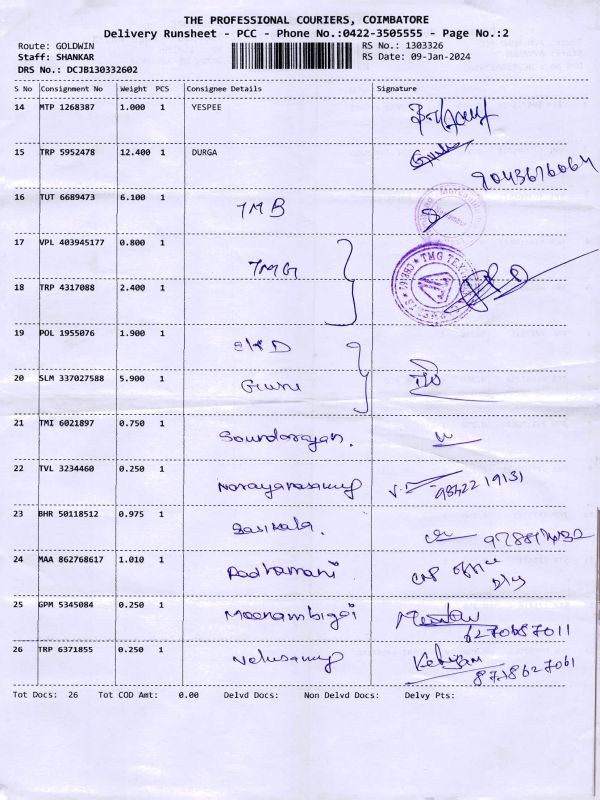 THE PROFESSIONAL COURIERS, COIMBATORE
Delivery Runsheet - PCC - Phone No.:0422-3505555 - Page No.:2
Route: GOLDWIN RS No.: 1303326
Staff: SHANKAR RS Date: 09-Jan-2024
DRS No.: DCJB130332602
S No Consignment No Weight PCS Consignee Details Signature
14 MTP 1268387 1.000 1 YESPEE
15 TRP 5952478 12.400 1 DURGA
9043676064
16 TUT 6689473 6.100 1 TMB
17 VPL 403945177 0.800 1 TMG
18 TRP 4317088 2.400 1
19 POL 1955076 1.900 1
20 SLM 337027588 5.900 1 Guru
21 TMI 6021897 0.750 1 Soundarajan.
22 TVL 3234460 0.250 1 Narayanasamy
23 BHR 50118512 0.975 1 Sasikala.
24 MAA 862768617 1.010 1 Radhamani office
25 GPM 5345084 0.250 1 Meenambigai
6270687011
26 TRP 6371855 0.250 1 Velusamy
8778627061
Tot Docs: 26 Tot COD Amt: 0.00 Delvd Docs: Non Delvd Docs: Delvy Pts: